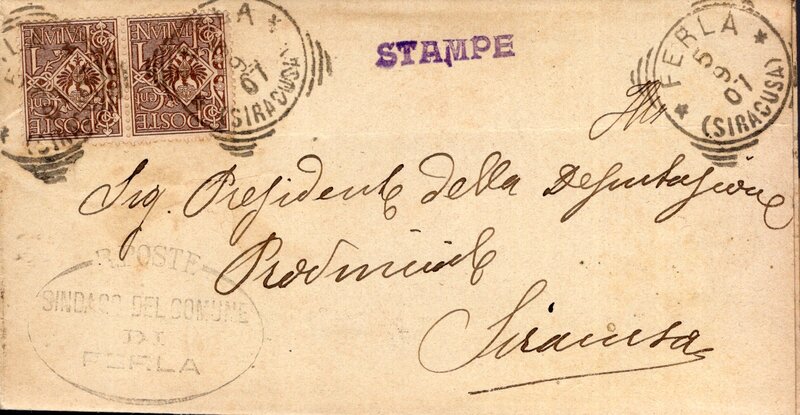 POSTE
ITALIANE
CENT 1
POSTE
ITALIANE
CENT 1
FERLA
9 07
(SIRACUSA)
STAMPE
* FERLA *
5 9 07
(SIRACUSA)
Ill.
Sig. Presidente della Deputazione
Provinciale
Siracusa
R. POSTE
SINDACO DEL COMUNE
DI
FERLA